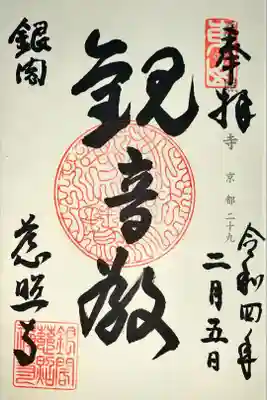 奉拝
寺 京都二十九
令和四年
二月五日
観音殿
銀閣
慈照寺